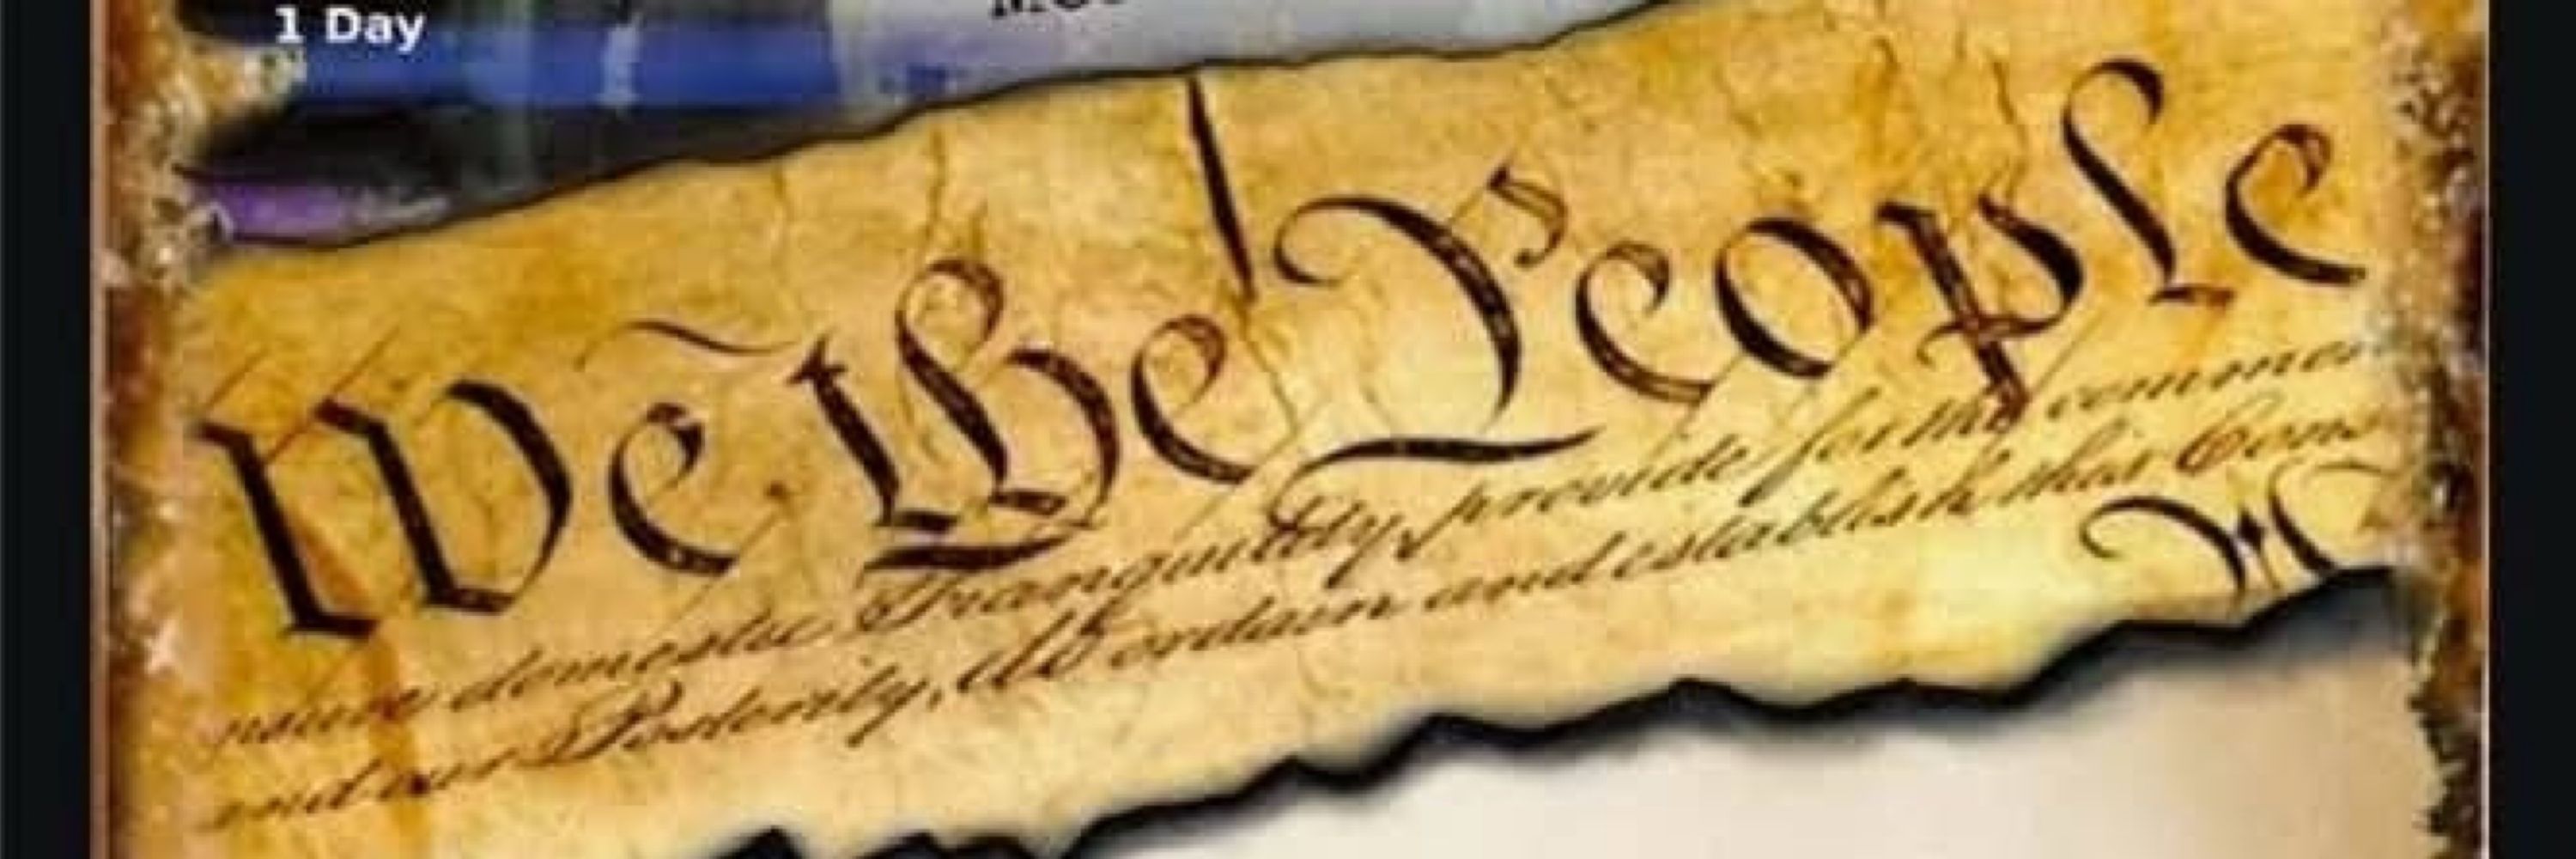 1 Day
We the People
domestic Tranquility, provide for the common
and our Posterity, do ordain and establish this Cons